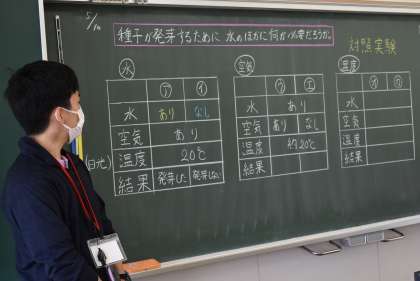 5/10
種子が発芽するために 水のほかに何が必要だろうか。
対照実験
水
㋐ ㋑
水 あり なし
空気 あり
(日光) 温度 20℃
結果 発芽した 発芽しない
空気
㋒ ㋓
水 あり
空気 あり なし
温度 約20℃
結果
温度
水
空気
温度
結果